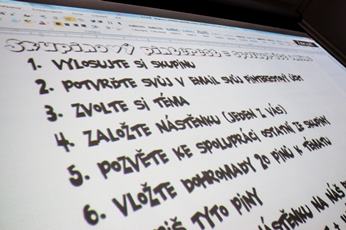 1. VYLOSUJTE SI SKUPINU
2. POTVRĎTE SVŮJ V EMAIL SVŮJ PINTERESTOVÝ ÚČET
3. ZVOLTE SI TÉMA
4. ZALOŽTE NÁSTĚNKU (JEDEN Z VÁS)
5. POZVĚTE KE SPOLUPRÁCI OSTATNÍ ZE SKUPINY
6. VLOŽTE DOHROMADY 20 PINŮ K TÉMATU
TYTO PINY
NÁSTĚNKU NA